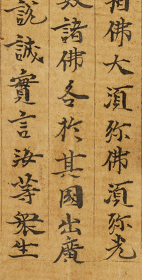 相佛大湏弥佛湏弥光
數諸佛各於其國出廣
說誠實言汝等衆生